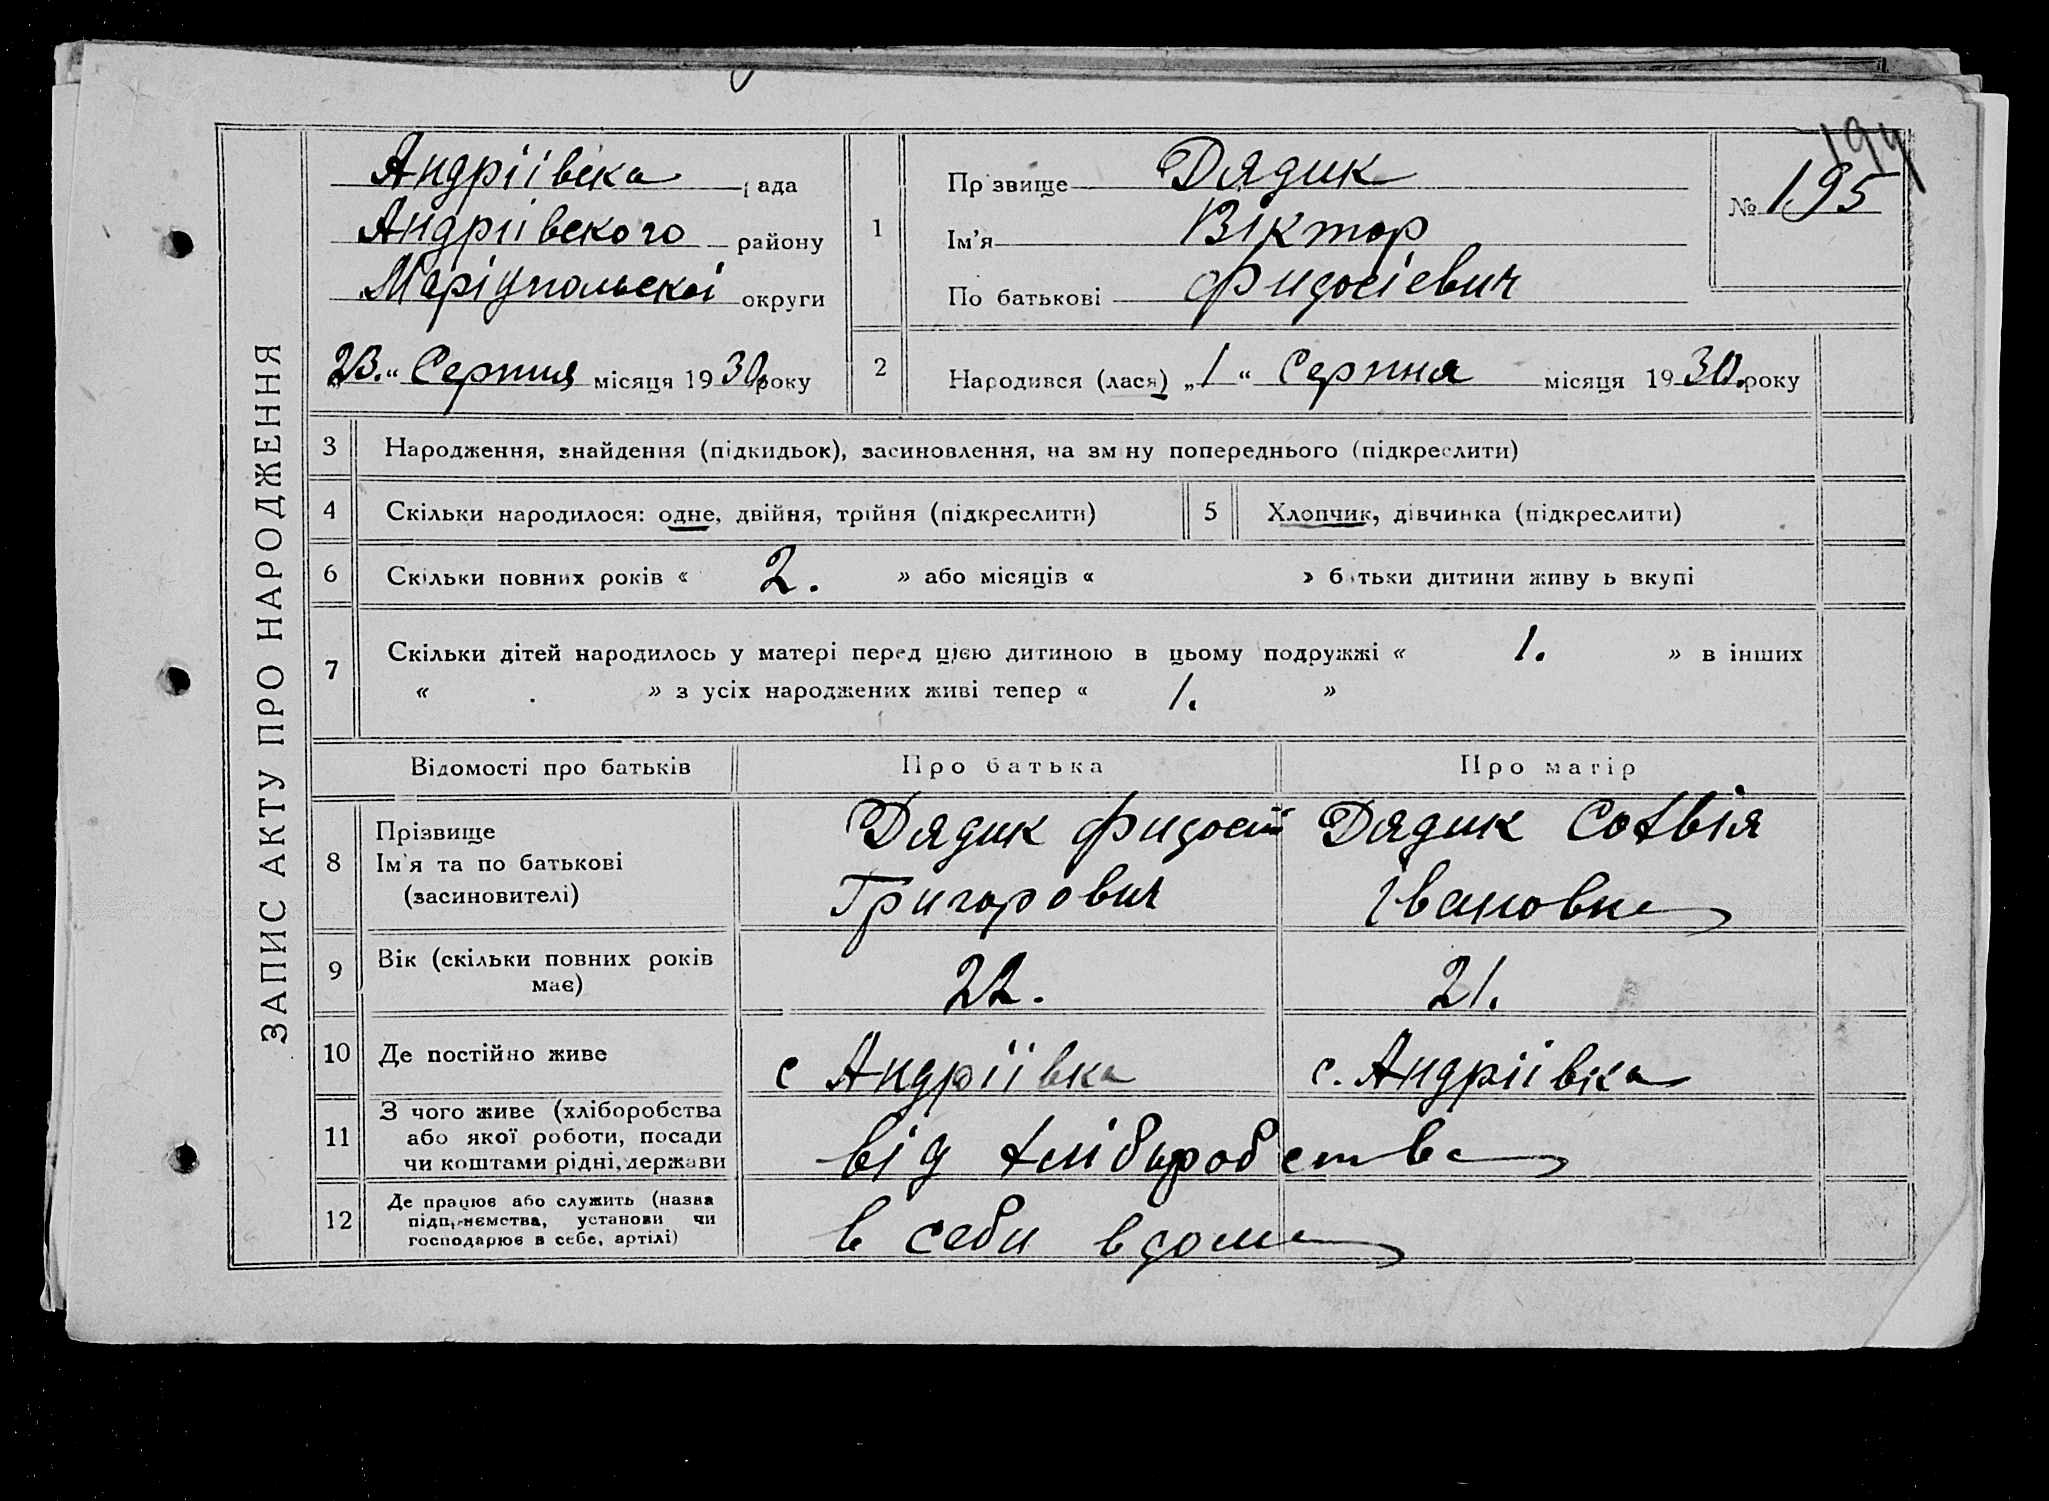 ЗАПИС АКТУ ПРО НАРОДЖЕННЯ
Андріівска рада
Андріівского району
Маріупольскоі округи
23 „ Серпня місяця 1930 року
1
Прізвище Дядик
Ім'я Віктор
По батькові Фидосіевич
194
№ 195
2
Народився (лася) „1“ Серпня місяця 1930. року
3 Народження, знайдення (підкидьок), засиновлення, на зміну попереднього (підкреслити)
4 Скільки народилося: одне, двійня, трійня (підкреслити) 5 Хлопчик, дівчинка (підкреслити)
6 Скільки повних років « 2. » або місяців « » батьки дитини живуть вкупі
7 Скільки дітей народилось у матері перед цією дитиною в цьому подружжі « 1. » в інших
« . » з усіх народжених живі тепер « 1. »
Відомості про батьків Про батька Про матір
8 Прізвище
Ім'я та по батькові
(засиновителі)
Дядик Фидосій
Григорович
Дядик Софвія
Івановна
9 Вік (скільки повних років
має)
22. 21.
10 Де постійно живе с Андріівка с. Андріівка
11 З чого живе (хліборобства
або якої роботи, посади
чи коштами рідні, держави
від хліборобства
12 Де працює або служить (назва
підприємства, установи чи
господарює в себе, артілі)
в себи вдома